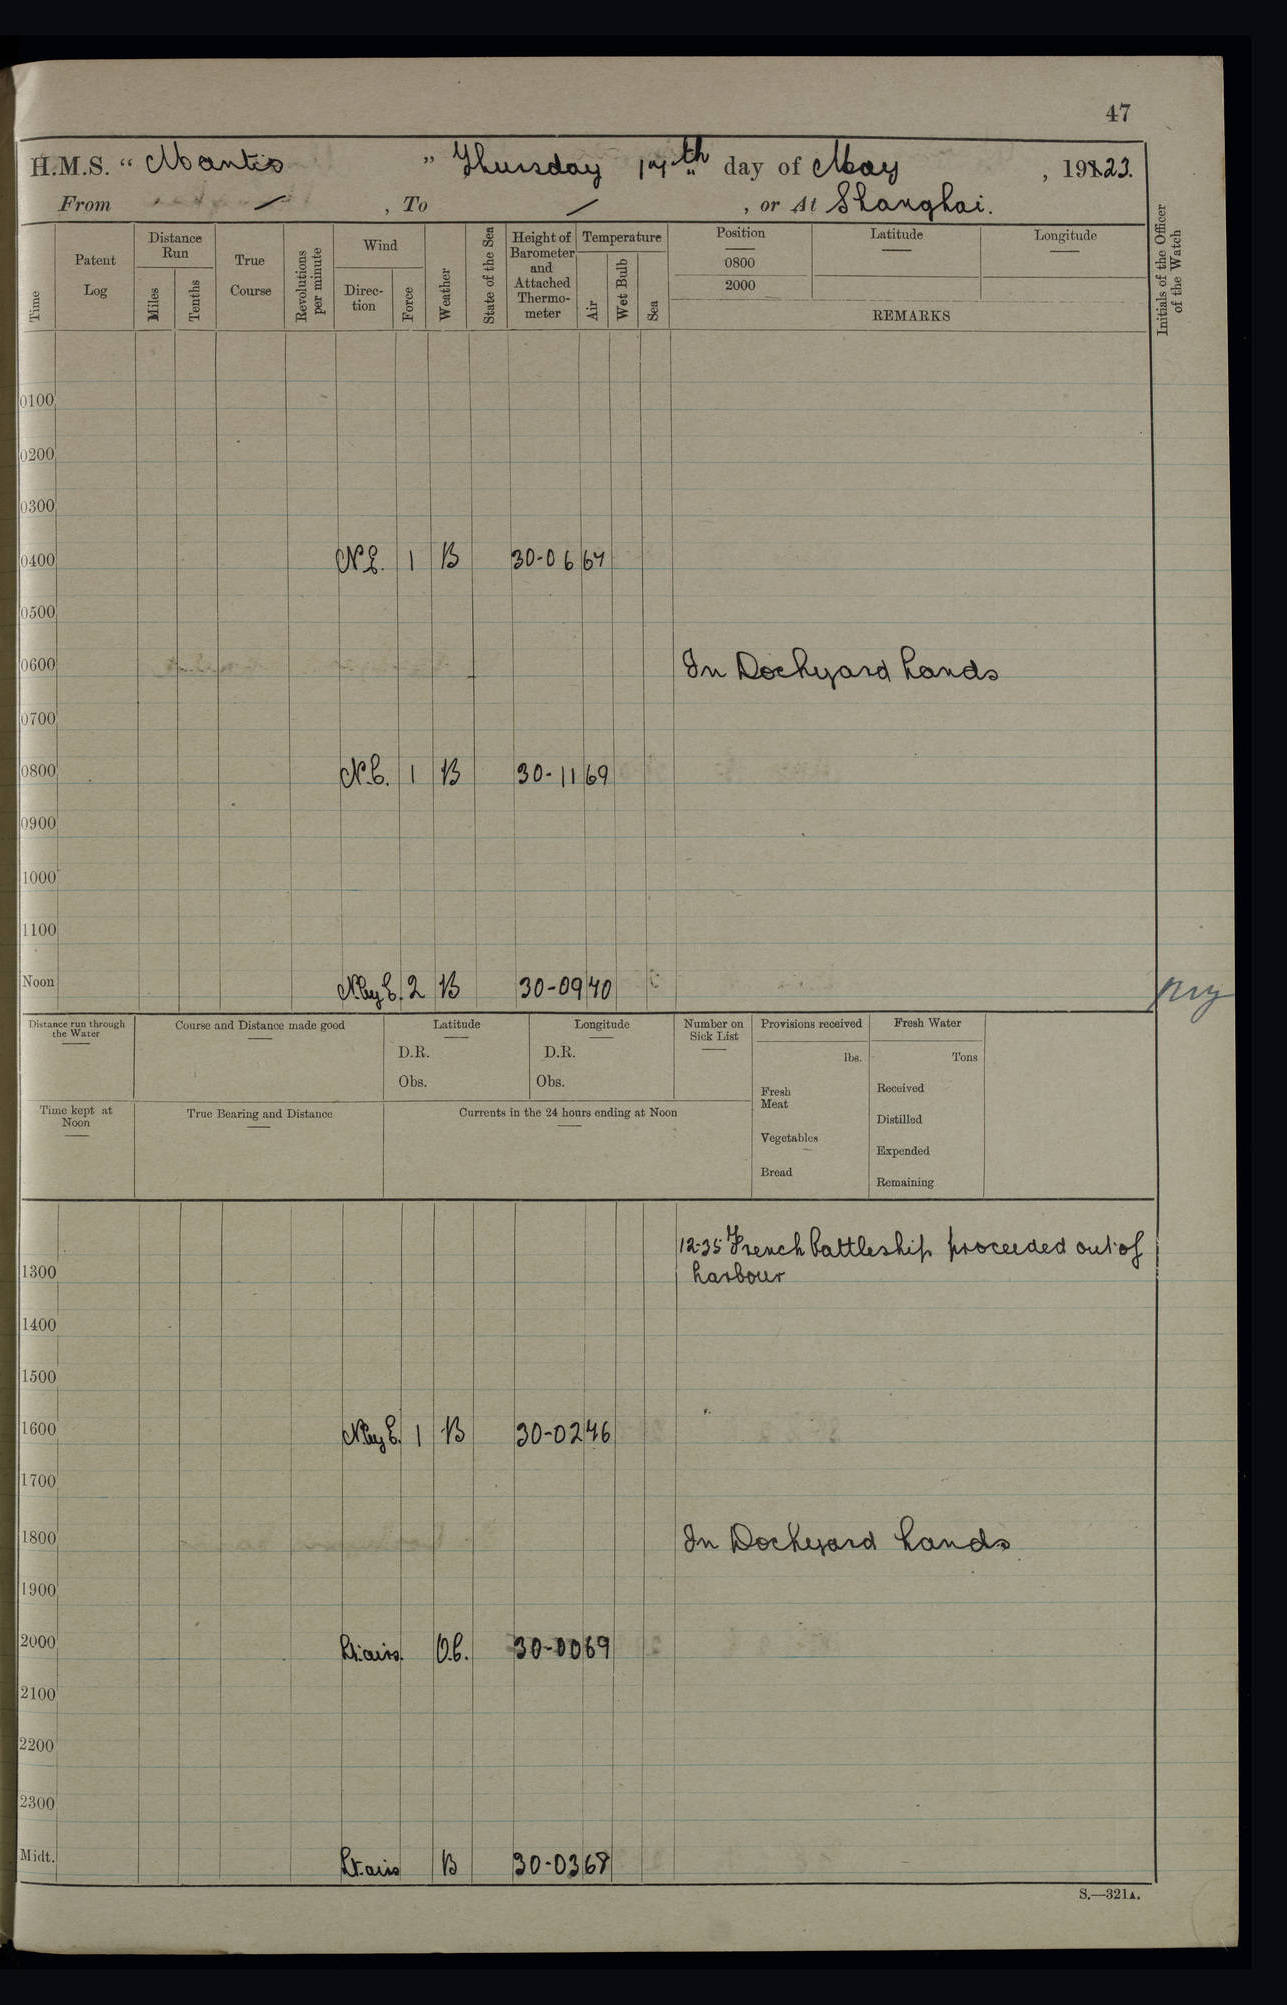 47
H.M.S. “ Mantis ” Thursday 17th day of May , 1923.
From / , To / , or At Shanghai.
Time
Patent Log
Distance Run
Miles
Tenths
True Course
Revolutions per minute
Wind
Direction
Force
Weather
State of the Sea
Height of Barometer and Attached Thermometer
Temperature
Air
Wet Bulb
Sea
Position
0800
2000
Latitude
Longitude
REMARKS
Initials of the Officer of the Watch
0100
0200
0300
0400 N.E. 1 B 30-06 67
0500
0600 In Dockyard hands
0700
0800 N.E. 1 B 30-11 69
0900
1000
1100
Noon N.by E. 2 B 30-09 70
Distance run through the Water
Course and Distance made good
Latitude
D.R.
Obs.
Longitude
D.R.
Obs.
Number on Sick List
Provisions received
lbs.
Fresh Meat
Vegetables
Bread
Fresh Water
Tons
Received
Distilled
Expended
Remaining
Time kept at Noon
True Bearing and Distance
Currents in the 24 hours ending at Noon
12-35 French battleship proceeded out of
harbour
1300
1400
1500
1600 N.by E. 1 B 30-02 76
1700
1800 In Dockyard hands
1900
2000 Lt.airs. O.C. 30-00 69
2100
2200
2300
Midt. Lt.airs B 30-03 67
S.—321A.